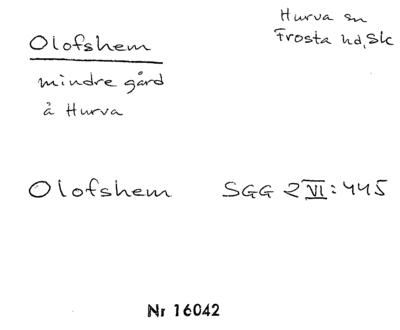 Olofshem
mindre gård
å Hurva
Hurva sn
Frosta hd, Sk
Olofshem SGG 2 VI: 445
Nr 16042